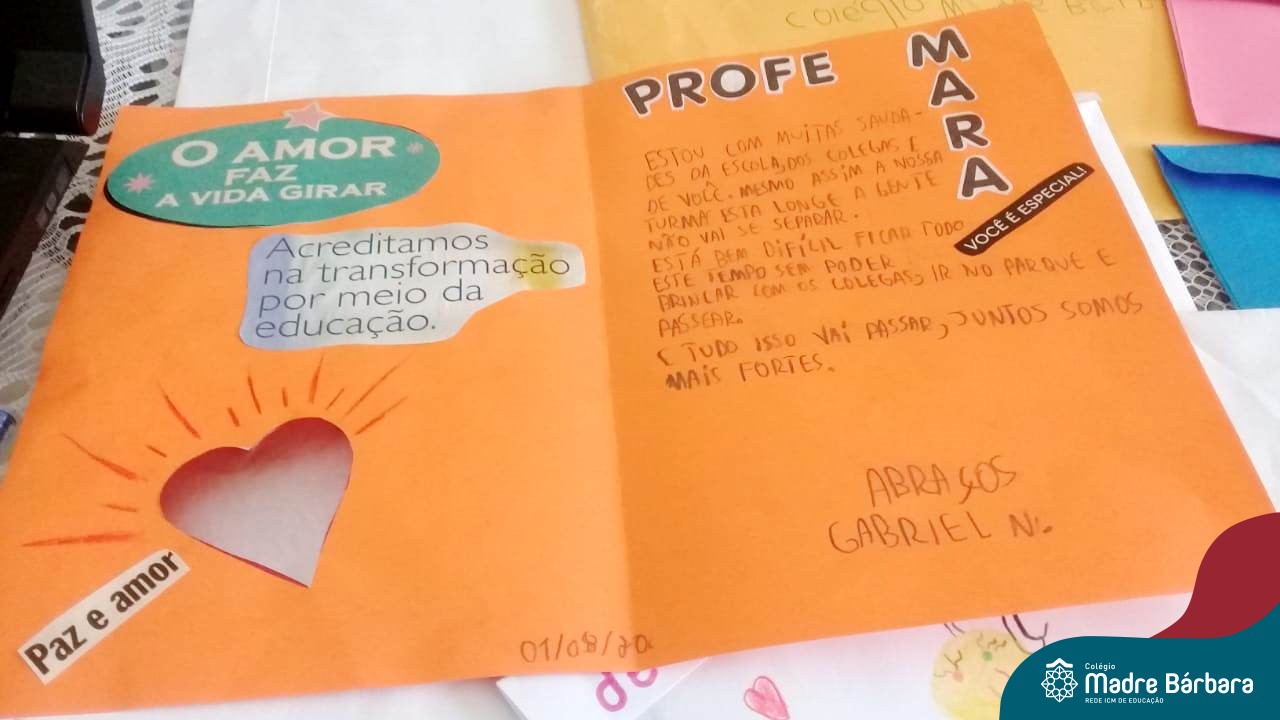 Colégio
O AMOR
FAZ
A VIDA GIRAR
Acreditamos
na transformação
por meio da
educação.
Paz e amor
01/08/20
PROFE
MARA
VOCÊ É ESPECIAL!
ESTOU COM MUITAS SAUDA-
DES DA ESCOLA, DOS COLEGAS E
DE VOCÊ. MESMO ASSIM A NOSSA
TURMA ESTA LONGE A GENTE
NÃO VAI SE SEPARAR.
ESTÁ BEM DIFÍCIL FICAR TODO
ESTE TEMPO SEM PODER
BRINCAR COM OS COLEGAS, IR NO PARQUE E
PASSEAR.
E TUDO ISSO VAI PASSAR, JUNTOS SOMOS
MAIS FORTES.
ABRAÇOS
GABRIEL N.
Colégio
Madre Bárbara
REDE ICM DE EDUCAÇÃO